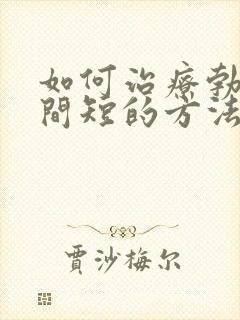 如何治療勃
間短的方法
賈沙梅尔